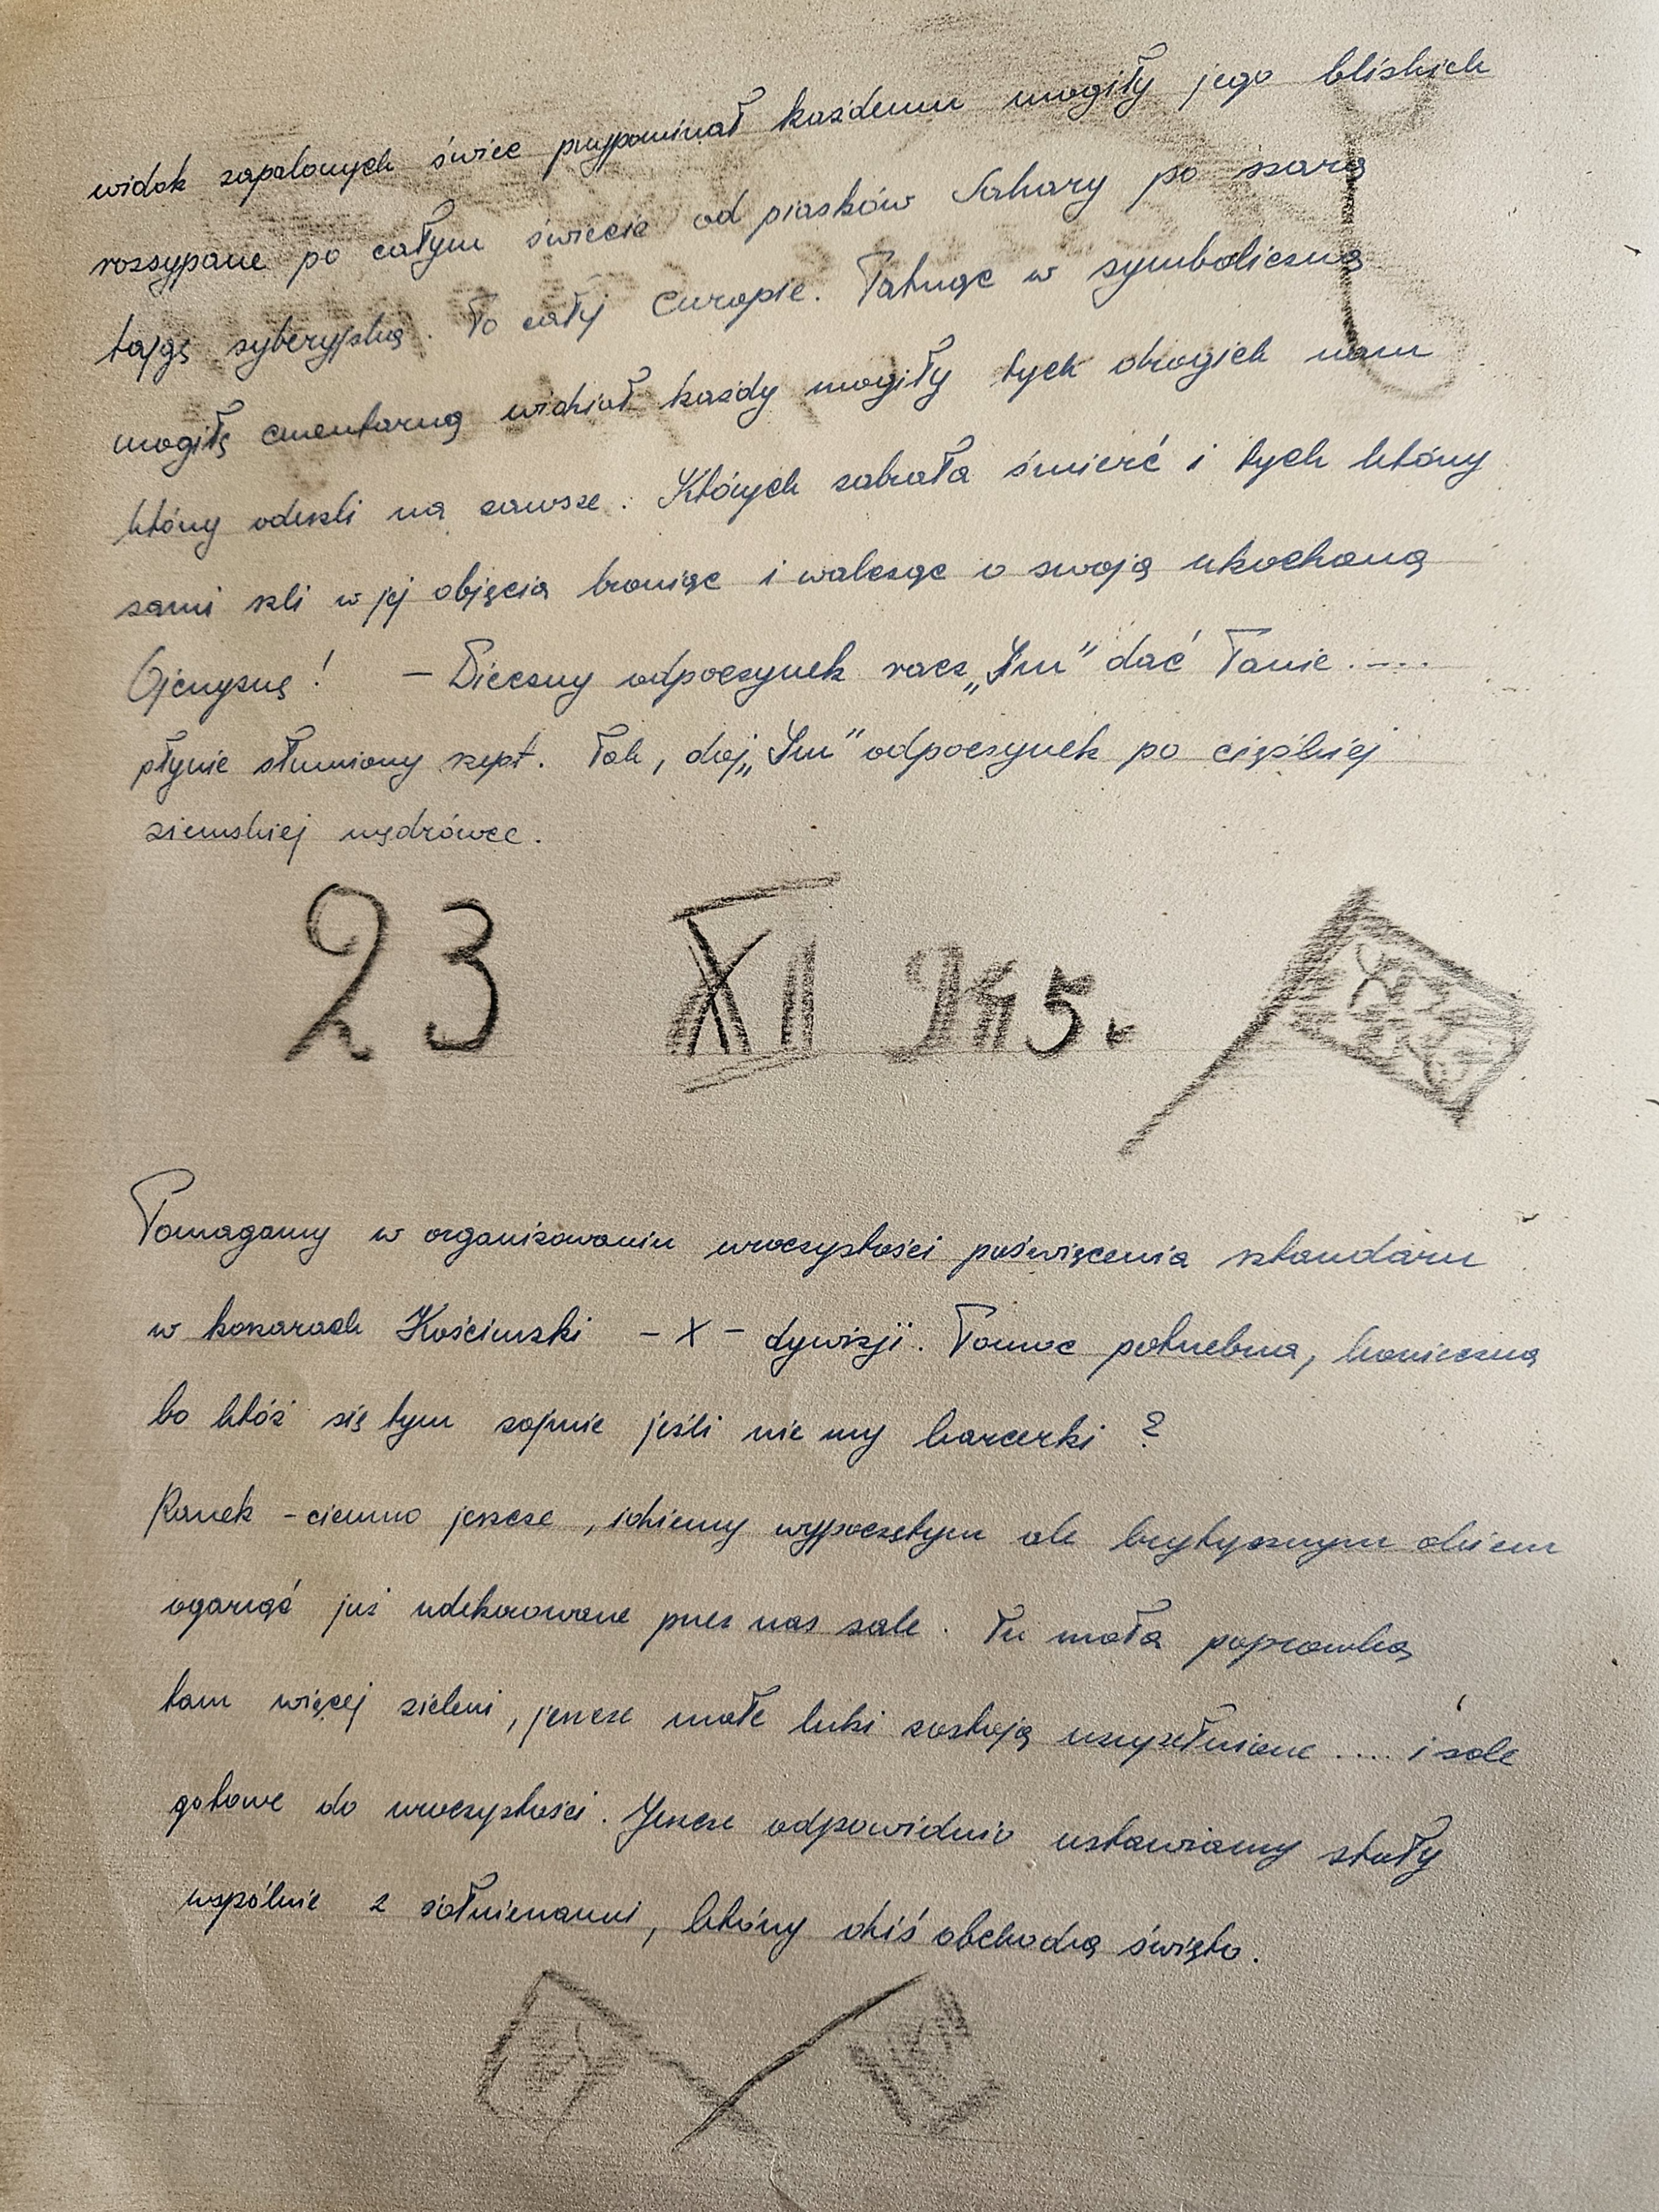 widok zapalonych świec przypominał każdemu mogiły jego bliskich
rozsypane po całym świecie od piasków Sahary po szarą
tajgę syberyjską. Po całej Europie. Patrząc w symboliczną
mogiłę cmentarną widział każdy mogiły tych drogich nam
którzy odeszli na zawsze. Których zabrała śmierć i tych którzy
sami szli w jej objęcia broniąc i walcząc o swoją ukochaną
Ojczyznę! – Wieczny odpoczynek racz „Im" dać Panie.....
płynie stłumiony szept. Tak, daj „Im" odpoczynek po ciężkiej
ziemskiej wędrówce.
23 XI 945 r.
Pomagamy w organizowaniu uroczystości poświęcenia sztandaru
w koszarach Kościuszki – X – dywizji. Pomoc potrzebna, konieczna
bo któż się tym zajmie jeśli nie my harcerki?
Ranek – ciemno jeszcze, idziemy wypoczętym ale krytycznym okiem
ogarnąć już udekorowane przez nas sale. Tu mała poprawka,
tam więcej zieleni, jeszcze małe luki zostają uzupełnione .... i sale
gotowe do uroczystości. Jeszcze odpowiednio ustawiamy stoły
wspólnie z żołnierzami, którzy dziś obchodzą święto.